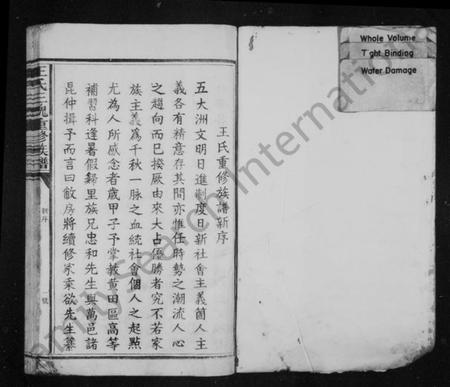 Whole Volume
Tight Binding
Water Damage
王氏重修族譜新序
五大洲文明日進制度日新社會主義箇人主
義各有精意存其間亦惟任時勢之潮流人心
之趨向而已揆厥由來大占優勝者究不若家
族主義為千秋一脉之血統社會個人之起點
尤為人所感念者歲甲子予掌教黄田區高等
補習科逢暑假歸里族兄忠和先生與萬邑諸
昆仲揖予而言曰敝房將續修家乘欲先生纂
王氏三槐 修族譜
新序